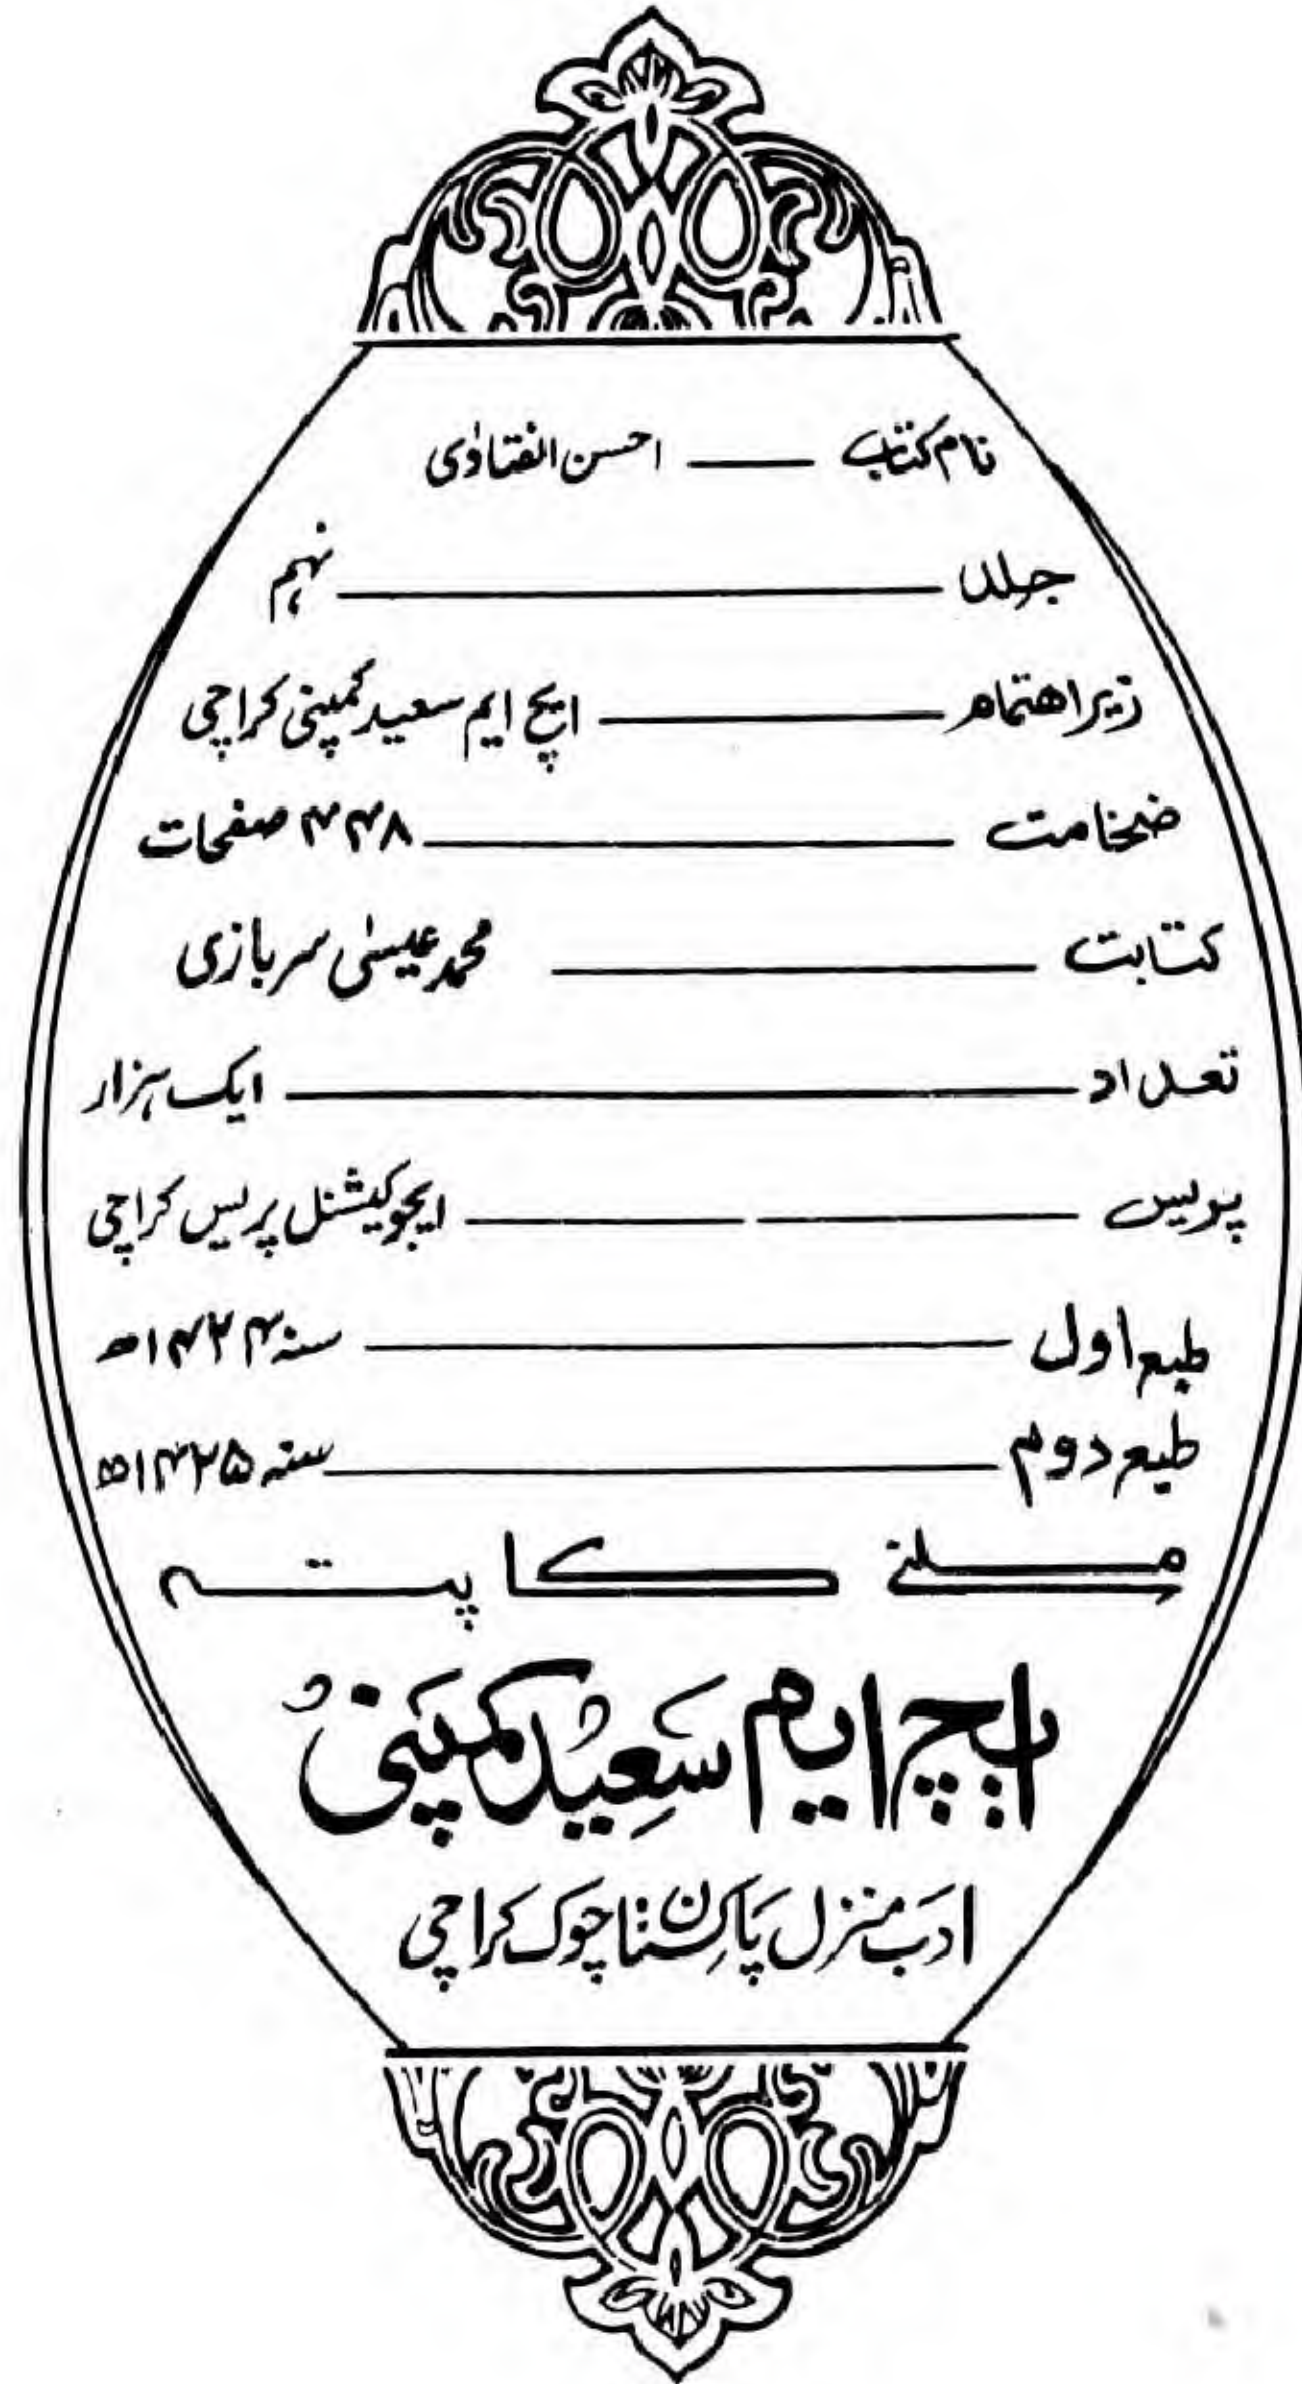 نام کتاب ــــ احسن الفتاوٰی
جلد ــــ نہم
زیر اہتمام ــــ ایچ ایم سعید کمپنی کراچی
ضخامت ــــ ۴۴۸ صفحات
کتابت ــــ محمد عیسٰی سربازی
تعداد ــــ ایک ہزار
پریس ــــ ایجوکیشنل پریس کراچی
طبع اول ــــ سنہ ۱۴۲۴ھ
طبع دوم ــــ سنہ ۱۴۲۵ھ
ملنے کا پتہ
ایچ ایم سَعِیْد کمپَنیْ
ادَب منزل پَاکِستان چوک کراچی